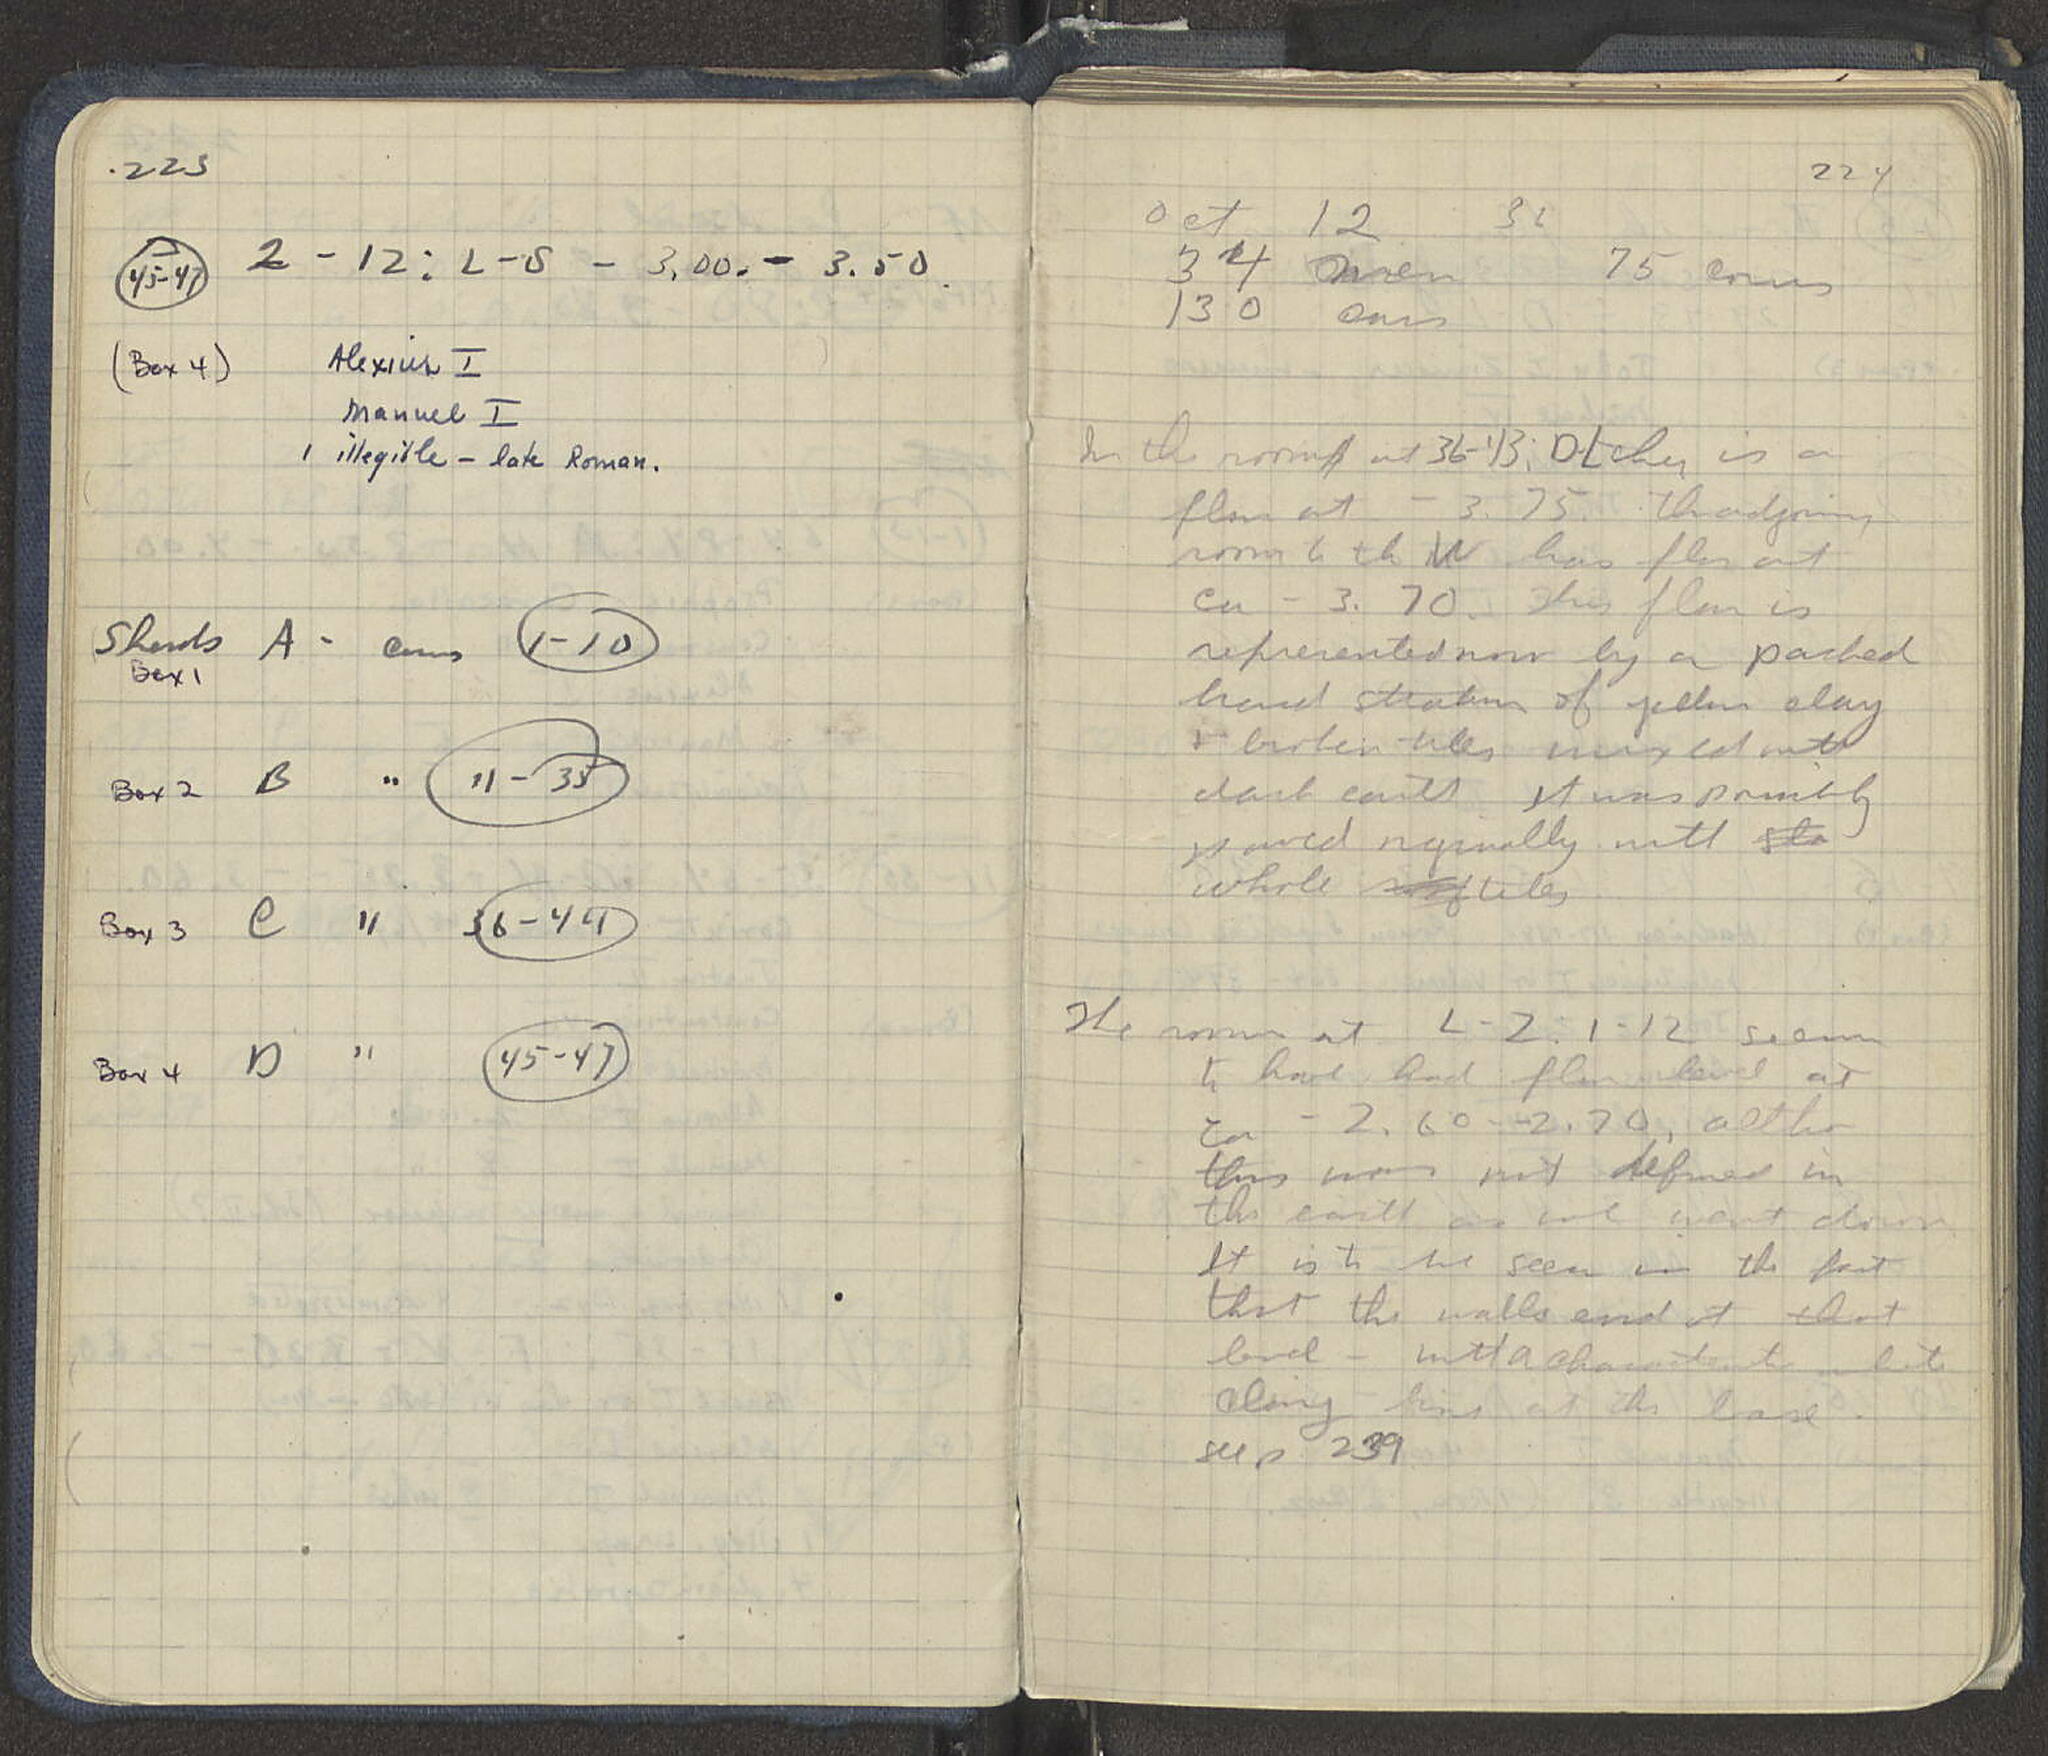 223
45-47 2 - 12: L-S - 3.00. - 3.50.
(Box 4) Alexius I
Manuel I
1 illegible - late Roman.
Sherds A - coins 1-10
Box 1
Box 2 B " 11-35
Box 3 C " 36-44
Box 4 D " 45-47
224
Oct 12 32
34 men 75 coins
130 cars
In the room at 36-43: D-L there is a
floor at - 3.75. The adjoining
room to the W has floor at
ca - 3.70. This floor is
represented now by a packed
hard stratum of yellow clay
+ broken tiles mixed with
dark earth It was possibly
paved originally with slo
whole tiles
The room at L-Z: 1-12 seems
to have had floor level at
ca - 2.60--2.70, altho
this was not defined in
the earth as we went down
It is to be seen in the fact
that the walls end at that
level - with a characteristic white
line at the base.
see p 239